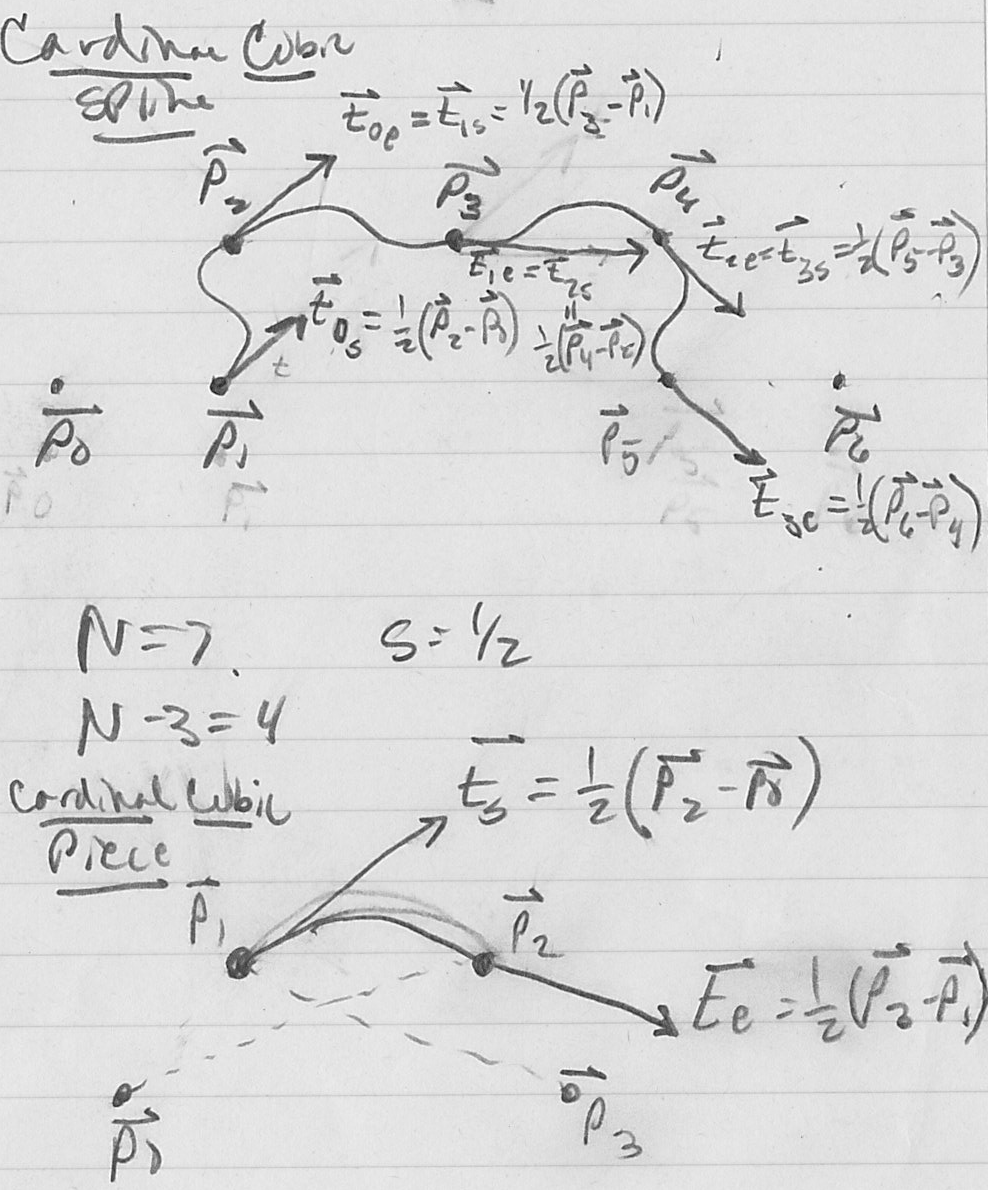 Cardinal Cubic
Spline
t⃗₀ₑ = t⃗₁ₛ = 1/2(P⃗₃-P⃗₁)
P⃗₂
P⃗₃
P⃗₄
t⃗₂ₑ = t⃗₃ₛ = 1/2(P⃗₅-P⃗₃)
t⃗₁ₑ = t⃗₂ₛ
t⃗₀ₛ = 1/2(P⃗₂-P⃗₀)
=
1/2(P⃗₄-P⃗₂)
t
P⃗₀
P⃗₁
P⃗₅
P⃗₆
t⃗₃ₑ = 1/2(P⃗₆-P⃗₄)
N=7
S=1/2
N-3=4
Cardinal Cubic
Piece
t⃗ₛ = 1/2(P⃗₂-P⃗₀)
P⃗₁
P⃗₂
t⃗ₑ = 1/2(P⃗₃-P⃗₁)
P⃗₀
P⃗₃